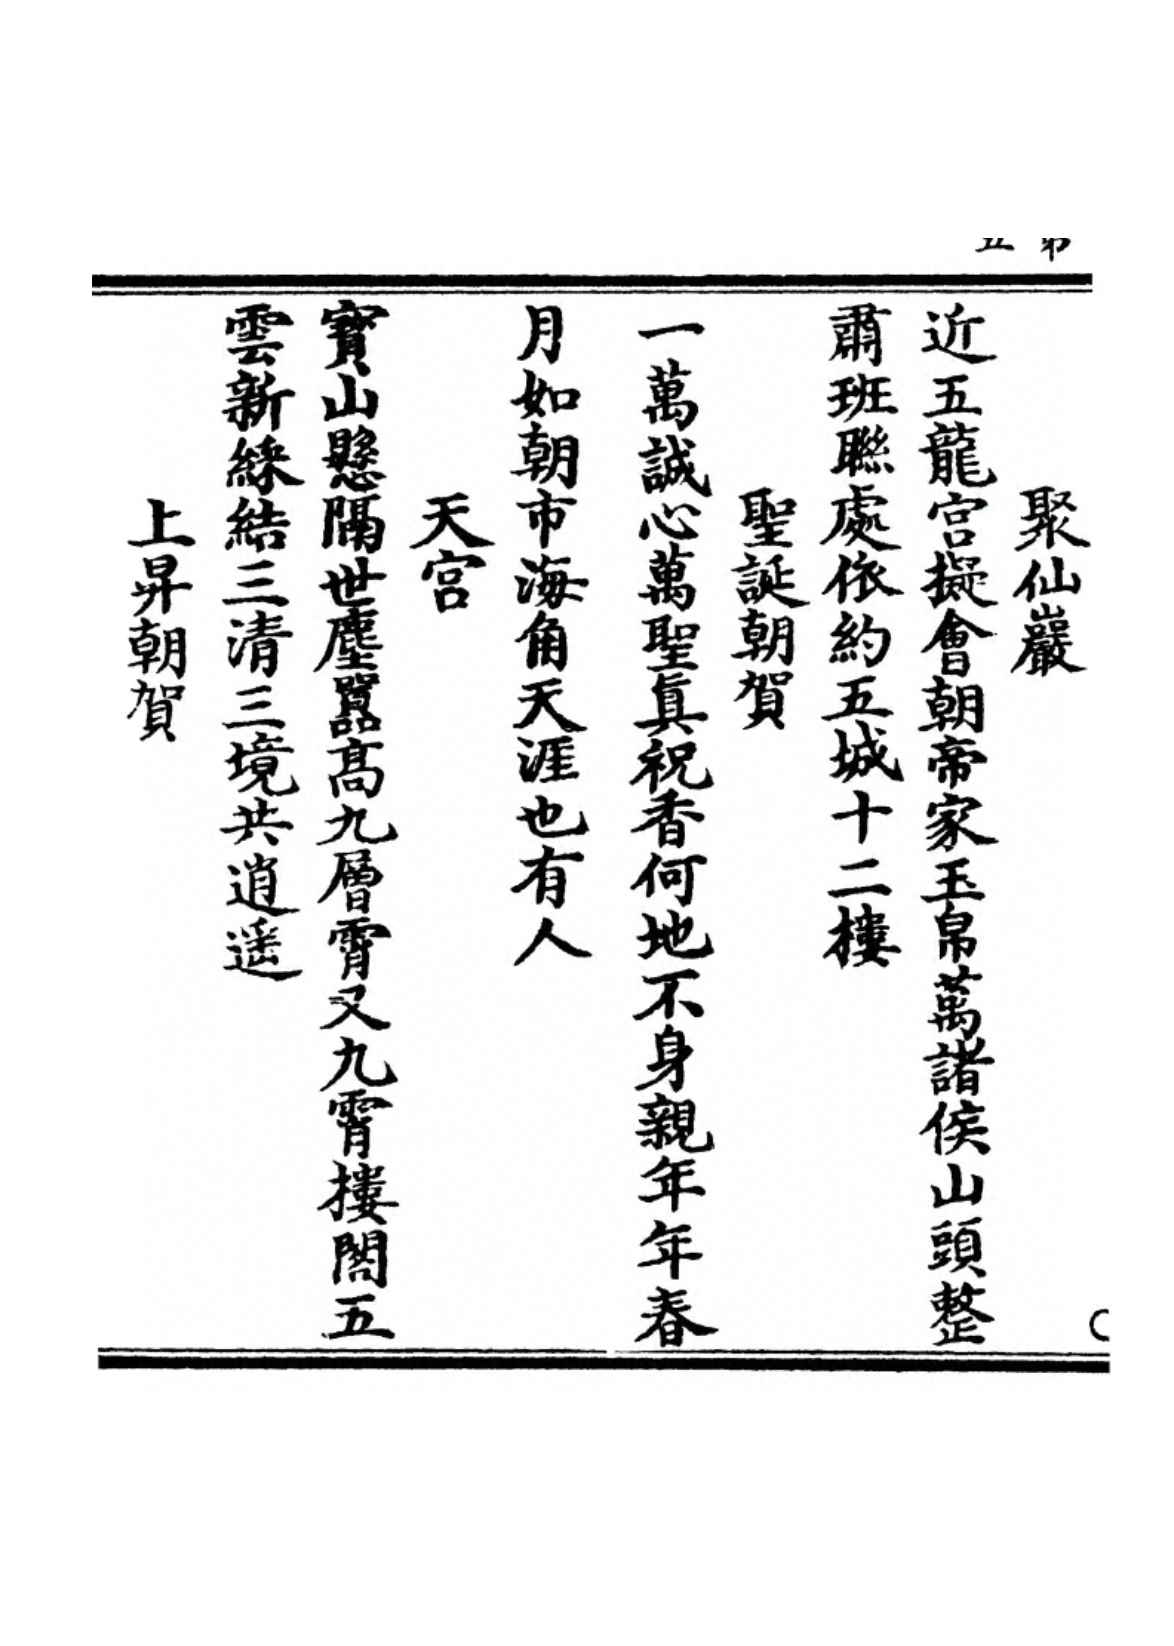 第五
聚仙巖
近五龍宫擬會朝帝家玉帛萬諸侯山頭整
肅班聯處依約五城十二樓
聖誕朝賀
一萬誠心萬聖眞祝香何地不身親年年春
月如朝市海角天涯也有人
天宫
寳山懸隔世塵囂髙九層霄又九霄樓閣五
雲新綵結三清三境共逍遥
上昇朝賀